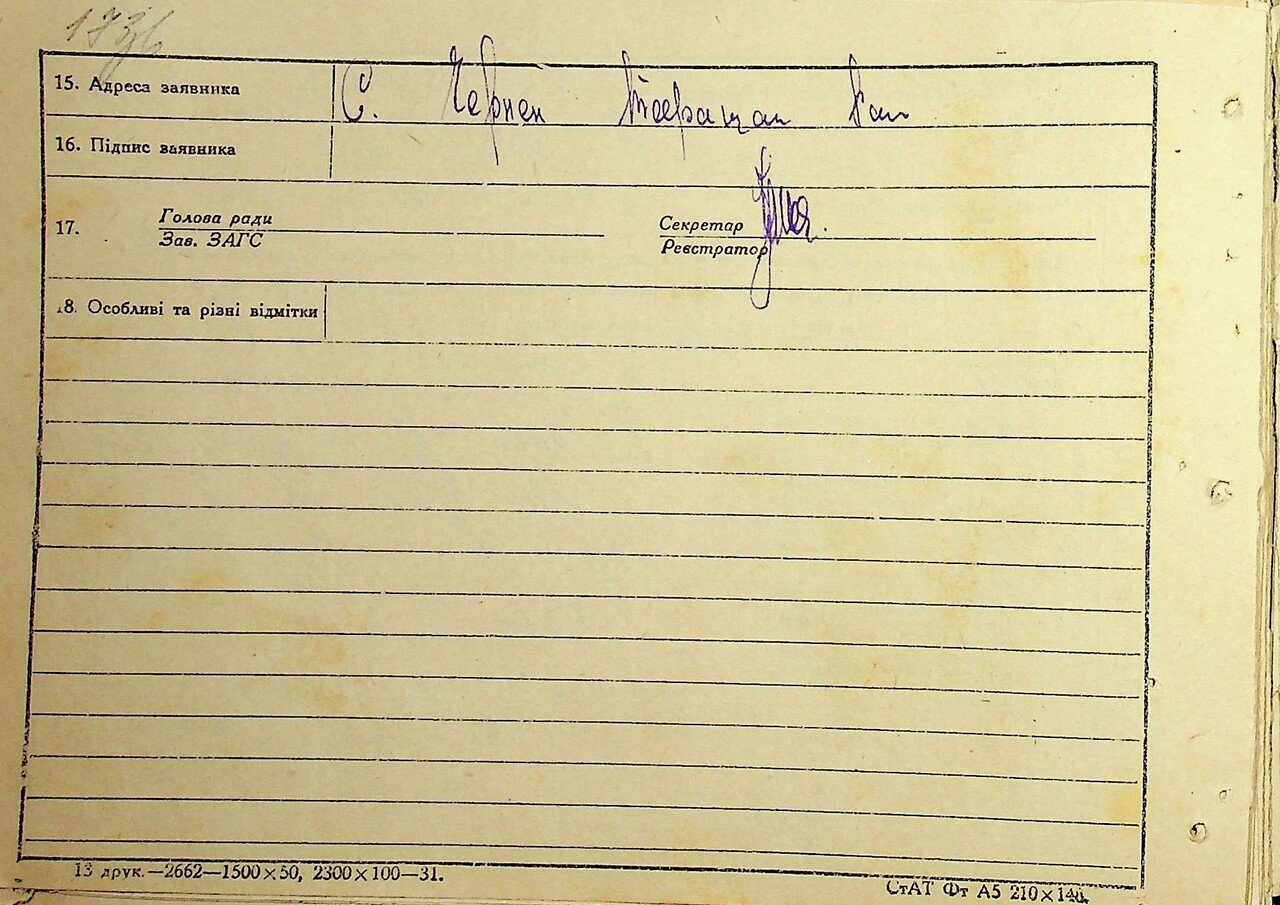 173б
15. Адреса заявника С. Черпен Таращан Рай
16. Підпис заявника
17. Голова ради Секретар
Зав. ЗАГС Реєстратор
18. Особливі та різні відмітки
13 друк.—2662—1500×50, 2300×100—31.
СтАТ Фт А5 210×148.